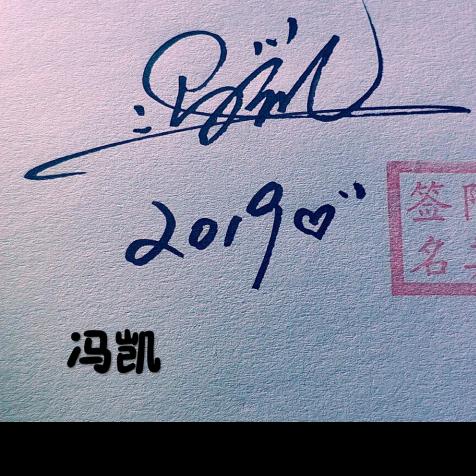 冯凯
2019
签
名
冯凯